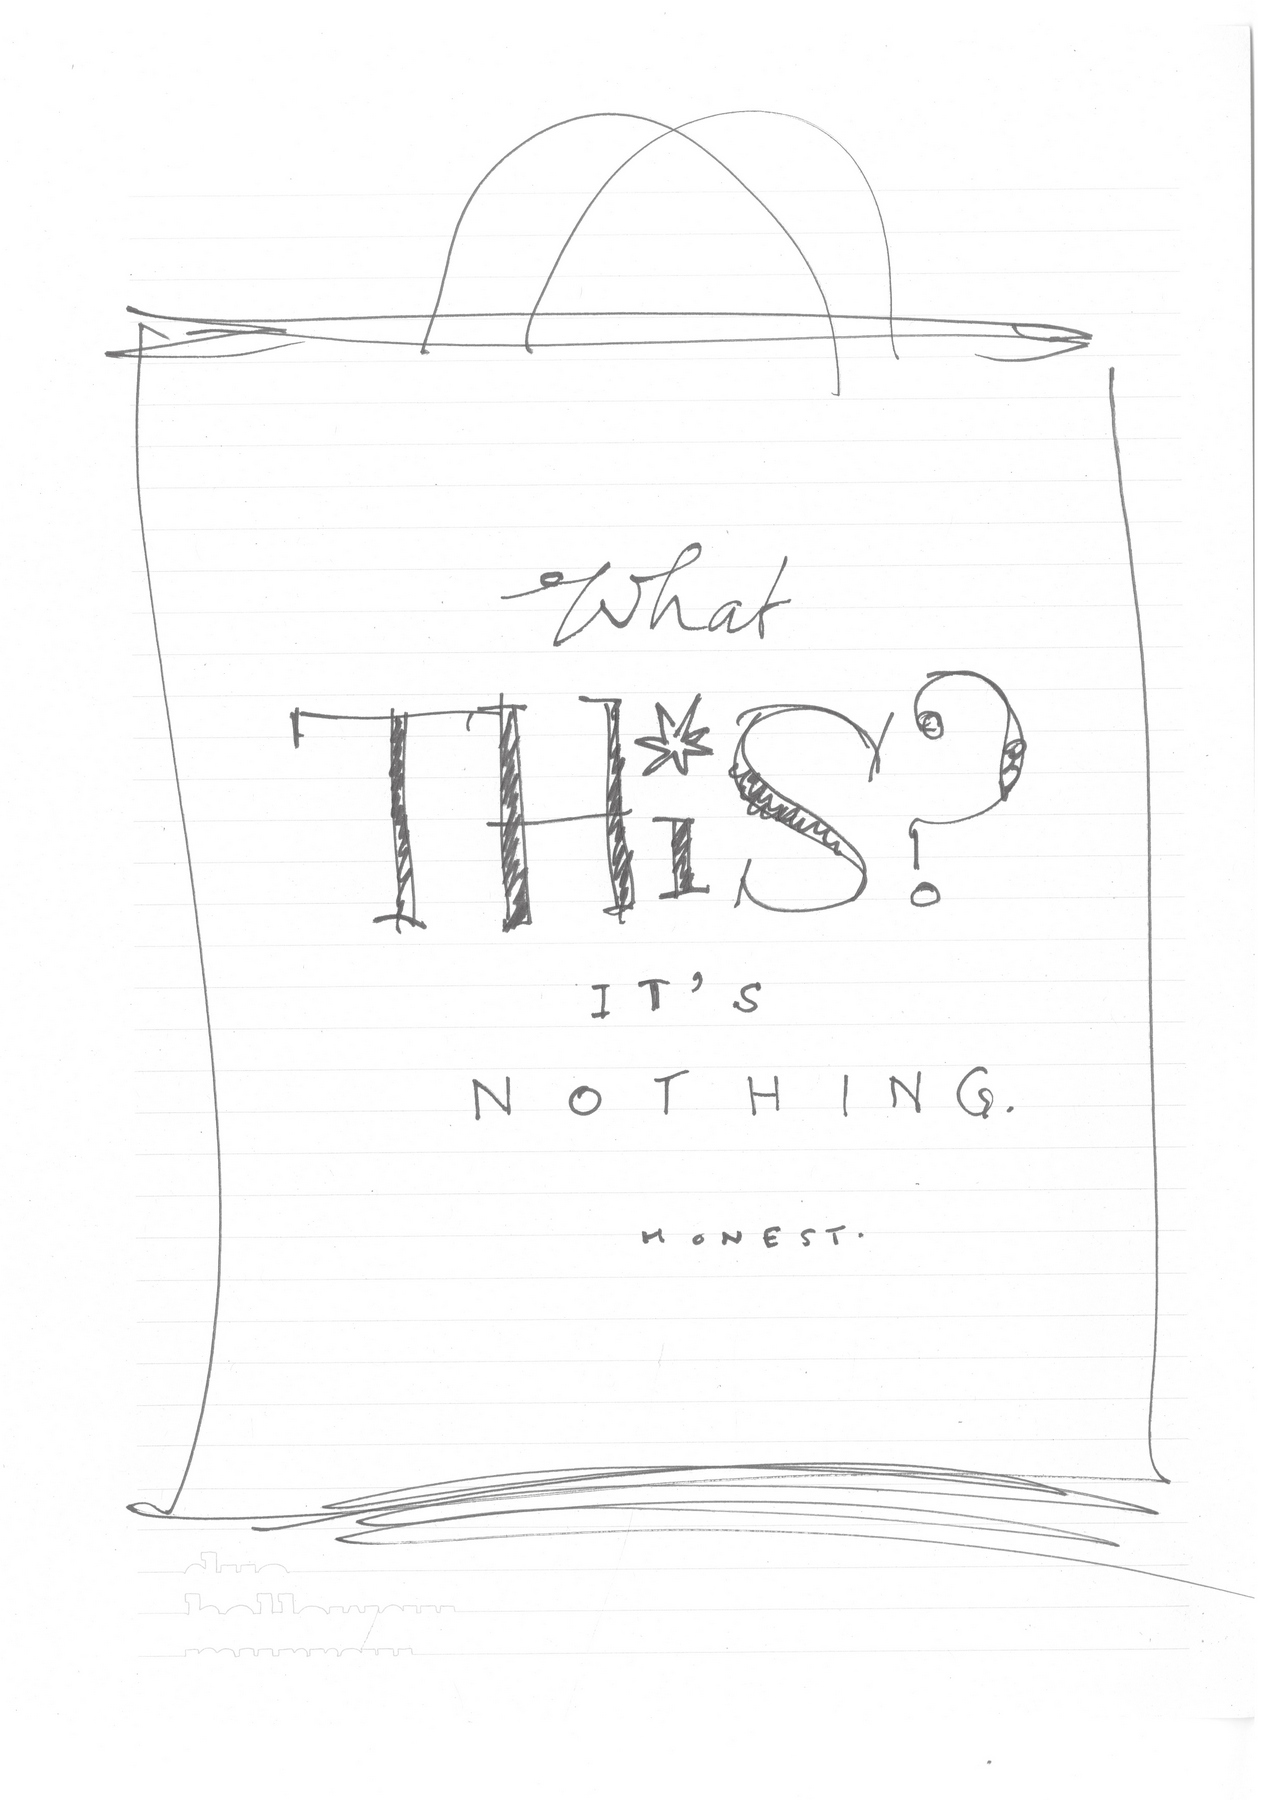 What
THiS?
IT'S
NOTHING.
HONEST.